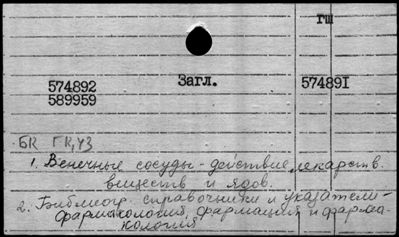 гш
574892 Загл. 574891
589959
БК ГК, ЧЗ
1. Венечные сосуды - действие лекарств.
веществ и ядов.
2. Библиогр. справочники и указатели -
фармакология, фармация и фарма-
кология